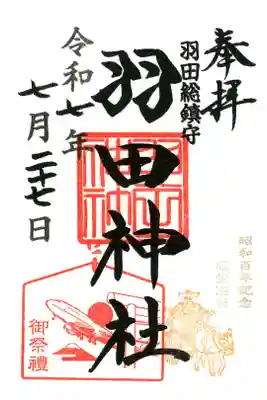 奉拝
羽田総鎮守
羽田神社
令和七年
七月二十七日
昭和百年記念
御祭禮